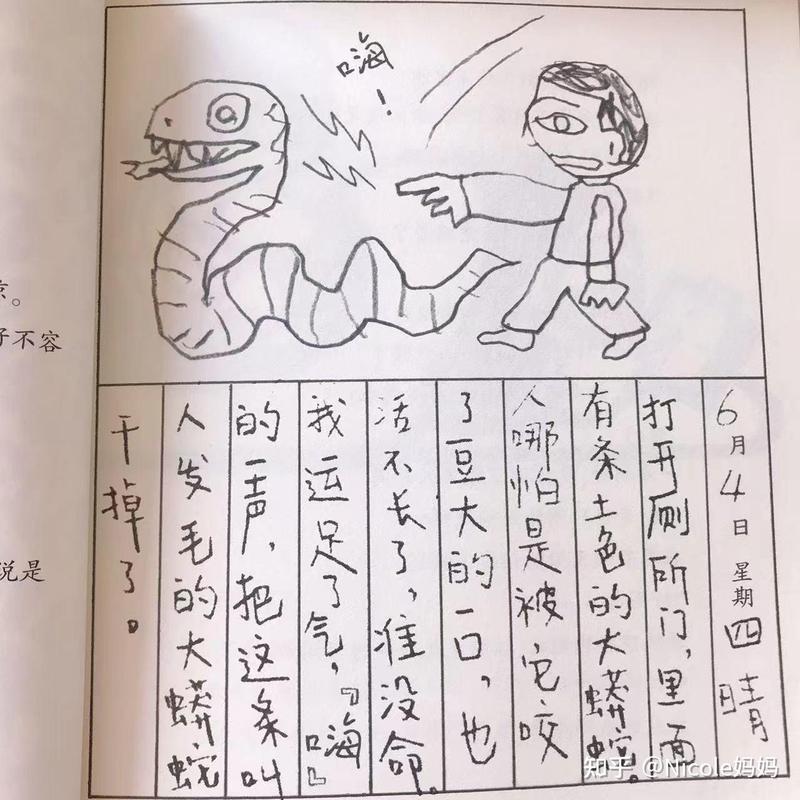 嗨！
6月4日 星期四 晴
打开厕所门，里面
有条土色的大蟒蛇。
人哪怕是被它咬
了豆大的一口，也
活不长了，准没命。
我运足了气，『嗨』
的一声，把这条叫
人发毛的大蟒蛇
干掉了。
不容
说是
知乎 @Nicole妈妈